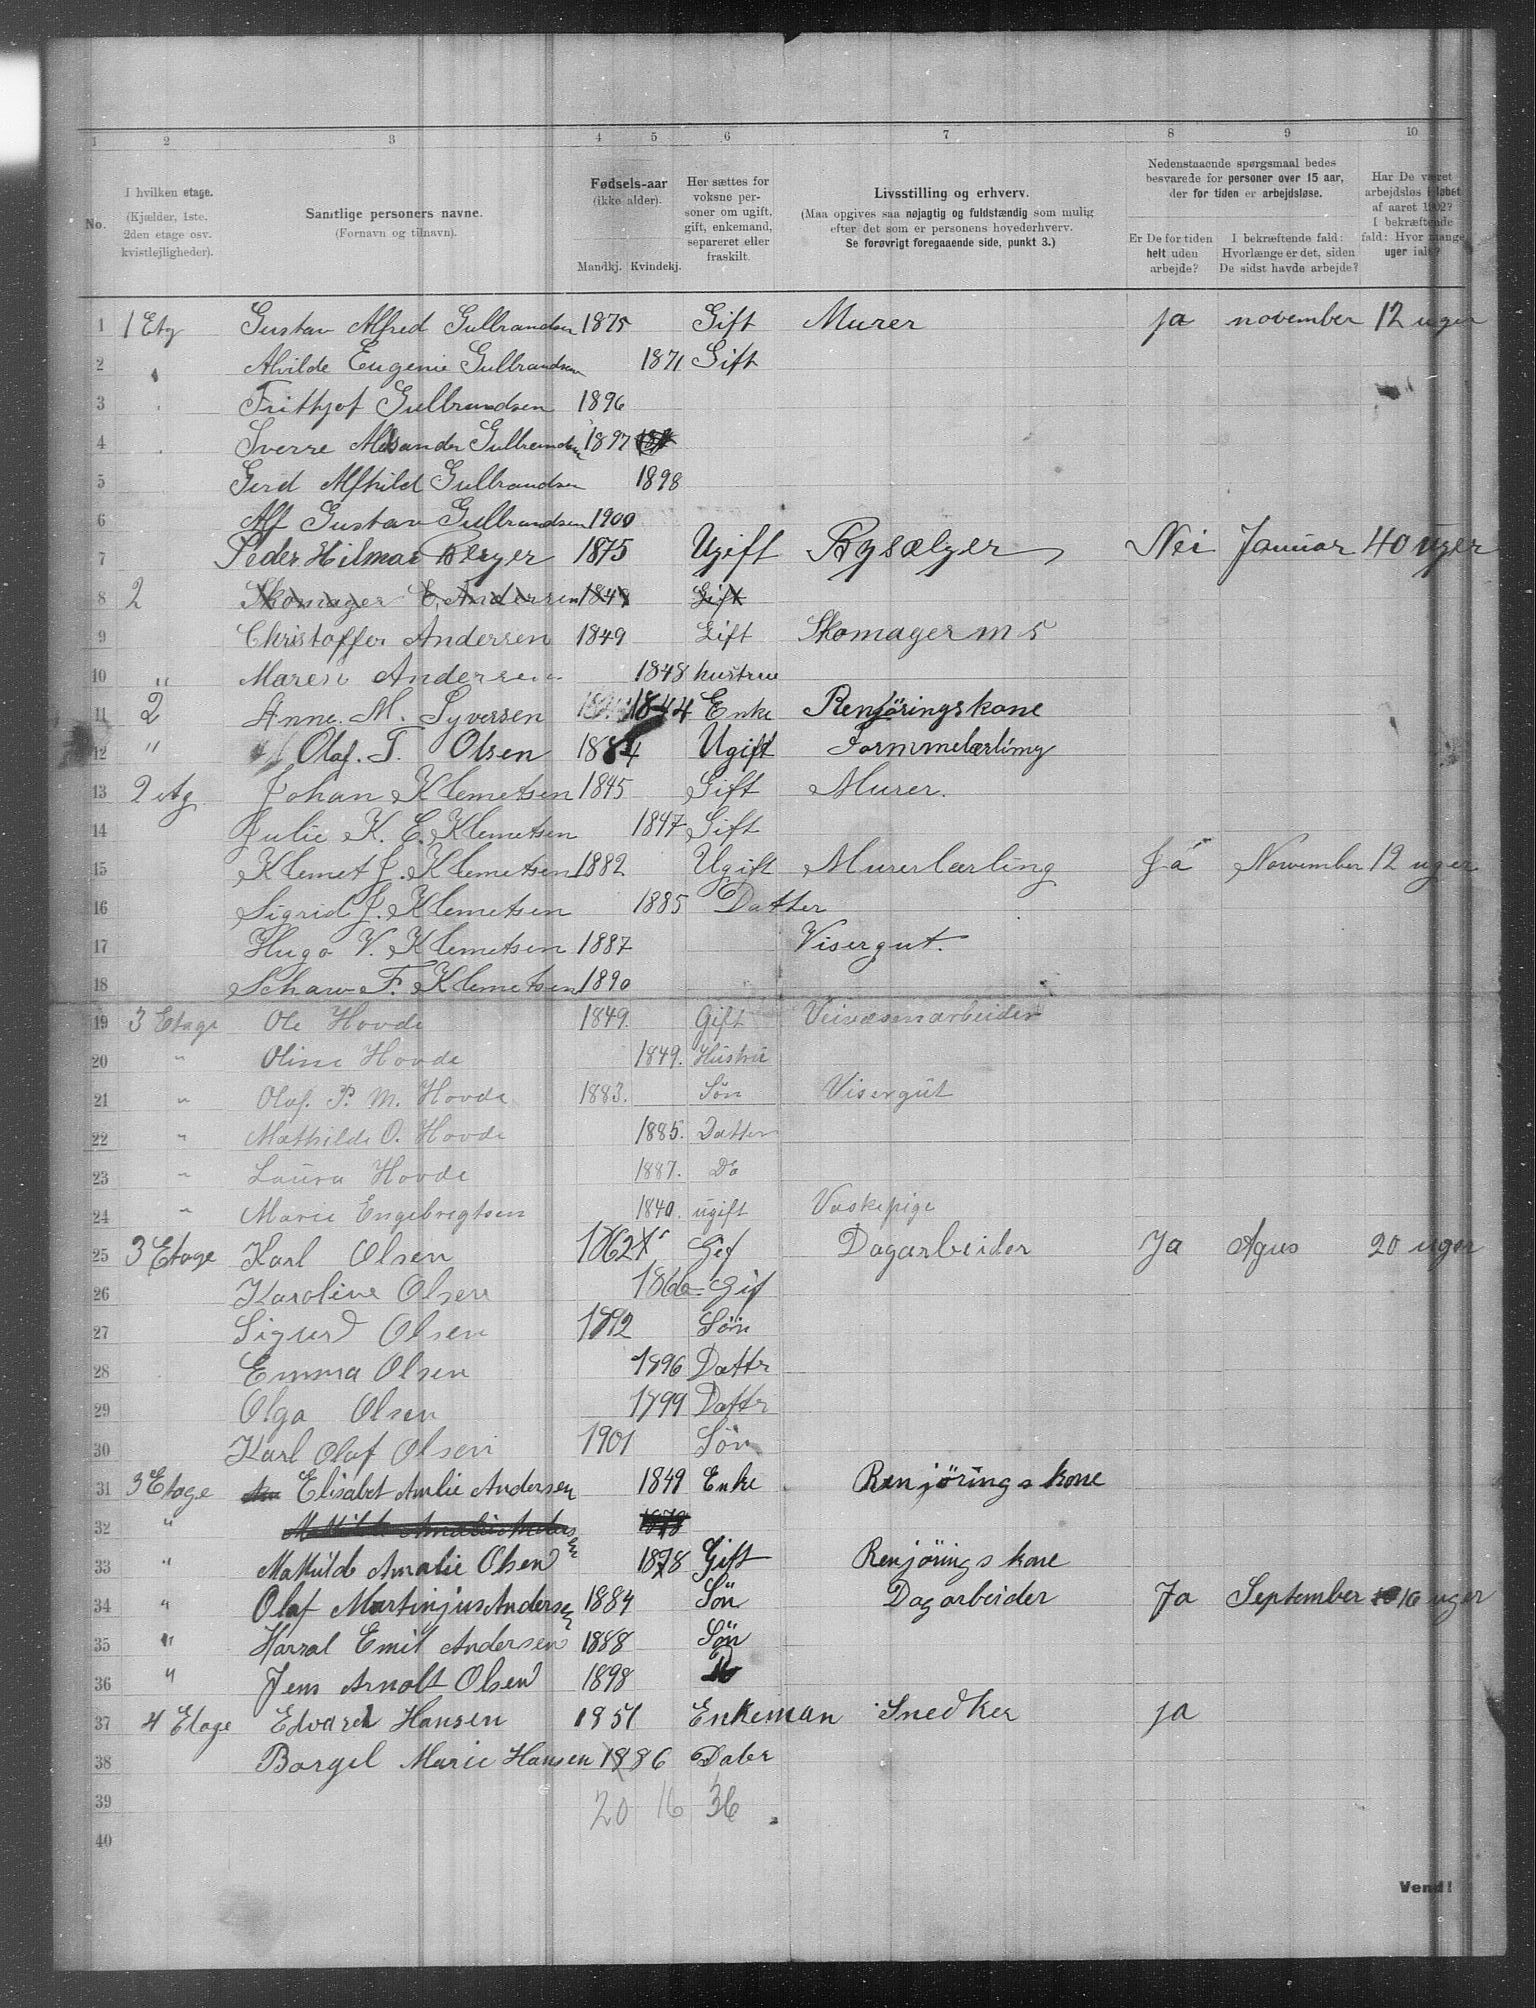 1 2 3 4 5 6 7 8 9 10
No.
I hvilken etage.
(Kjælder, 1ste, 2den etage osv. kvistlejligheder).
Samtlige personers navne.
(Fornavn og tilnavn).
Fødsels-aar
(ikke alder).
Mandkj. Kvindekj.
Her sættes for voksne personer om ugift, gift, enkemand, separeret eller fraskilt.
Livsstilling og erhverv.
(Maa opgives saa nøjagtig og fuldstændig som mulig efter det som er personens hovederhverv.
Se forøvrigt foregaaende side, punkt 3.)
Nedenstaaende spørgsmaal bedes besvarede for personer over 15 aar, der for tiden er arbejdsløse.
Er De for tiden helt uden arbejde?
I bekræftende fald: Hvorlænge er det, siden De sidst havde arbejde?
Har De været arbejdsløs i løbet af aaret 1902? I bekræftende fald: Hvor mange uger ialt?
1 1 Etg Gustav Alfred Gulbrandsen 1875 Gift Murer ja november 12 uger
2 Alvilde Eugenie Gulbrandsen 1871 Gift
3 Frithjof Gulbrandsen 1896
4 Sverre Alexander Gulbrandsen 1897
5 Gerd Alfhild Gulbrandsen 1898
6 Alf Gustav Gulbrandsen 1900
7 Peder Hilmar Berger 1875 Ugift Bysælger Nei Januar 40 uger
8 2 Skomager C. Andersen 1849 Gift
9 Christoffer Andersen 1849 Gift Skomager m 5
10 " Maren Andersen 1848 hustrue
11 2 Anne. M. Syversen 1844 Enke Renjöringskone
12 " Olaf. T. Olsen 1884 Ugift Formmelærling
13 2 etg Johan Klemetsen 1845 Gift Murer.
14 Julie K. E. Klemetsen 1847 Gift
15 Klemet J. Klemetsen 1882 Ugift Murerlærling Ja November 12 uger
16 Sigrid J. Klemetsen 1885 Datter
17 Hugo V. Klemetsen 1887 Visergut.
18 Schaw F. Klemetsen 1890
19 3 Etage Ole Hovde 1849. Gift Veivæsenarbeider
20 " Oline Hovde 1849. Hustru
21 " Olaf. P. M. Hovde 1883. Sön Visergut
22 " Mathilde O. Hovde 1885. Datter
23 " Laura Hovde 1887. Do
24 " Marie Engebregtsen 1840. ugift Vaskepige
25 3 Etage Karl Olsen 1862 Gif Dagarbeider Ja Agus 20 uger
26 Karoline Olsen 1866 Gif
27 Sigurd Olsen 1892 Sön
28 Emma Olsen 1896 Dattr
29 Olga Olsen 1899 Dattr
30 Karl Olaf Olsen 1901 Sön
31 3 Etage Elisabet Amlie Andersen 1849 Enke Renjörings kone
32 " Mathilde Amalie Andersen 1878
33 " Mathilde Amalie Olsen 1878 Gift Renjörings kone
34 " Olaf Martinjus Andersen 1884 Sön Dagarbeider Ja September 16 uger
35 " Harral Emil Andersen 1888 Sön
36 " Jens Arnolt Olsen 1898
37 4 Etage Edvard Hansen 1851 Enkeman Snedker ja
38 Borgel Marie Hansen 1886 Dater
39 20 16 36
40
Vend!